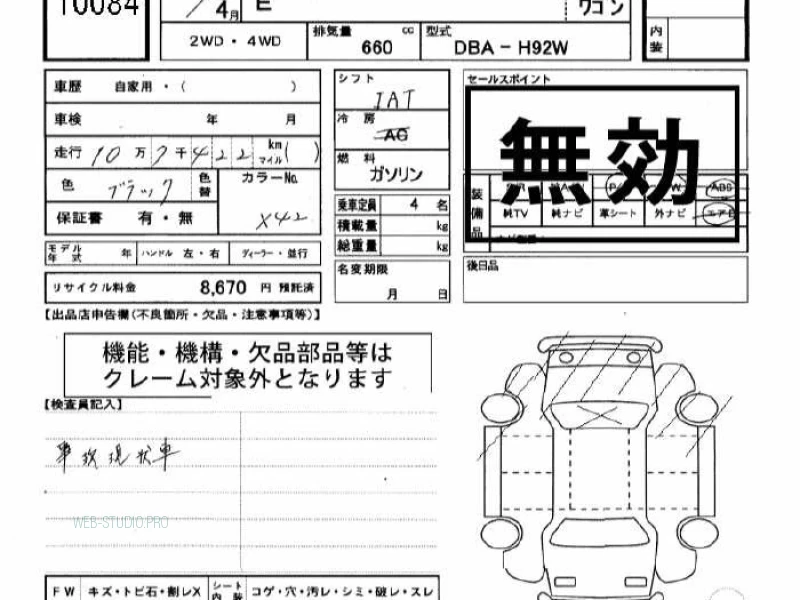 10084
4月 E ワゴン
2WD・4WD 排気量 660 cc 型式 DBA－H92W
内装
車歴 自家用・（ ）
車検 年 月
走行 10万7千422 km マイル( )
色 ブラック 色替 カラーNo. X42
保証書 有・無
モデル年式 年 ハンドル 左・右 ディーラー・並行
リサイクル料金 8,670 円 預託済
シフト IAT
冷房 AC
燃料 ガソリン
乗車定員 4 名
積載量 kg
総重量 kg
名変期限 月 日
セールスポイント
無効
装備品 ABS
純TV 純ナビ 革シート 外ナビ エアB
後日品
【出品店申告欄(不良箇所・欠品・注意事項等)】
機能・機構・欠品部品等は
クレーム対象外となります
【検査員記入】
事故現状車
WEB-STUDIO.PRO
FW キズ・トビ石・割レX シート内装 コゲ・穴・汚レ・シミ・破レ・スレ